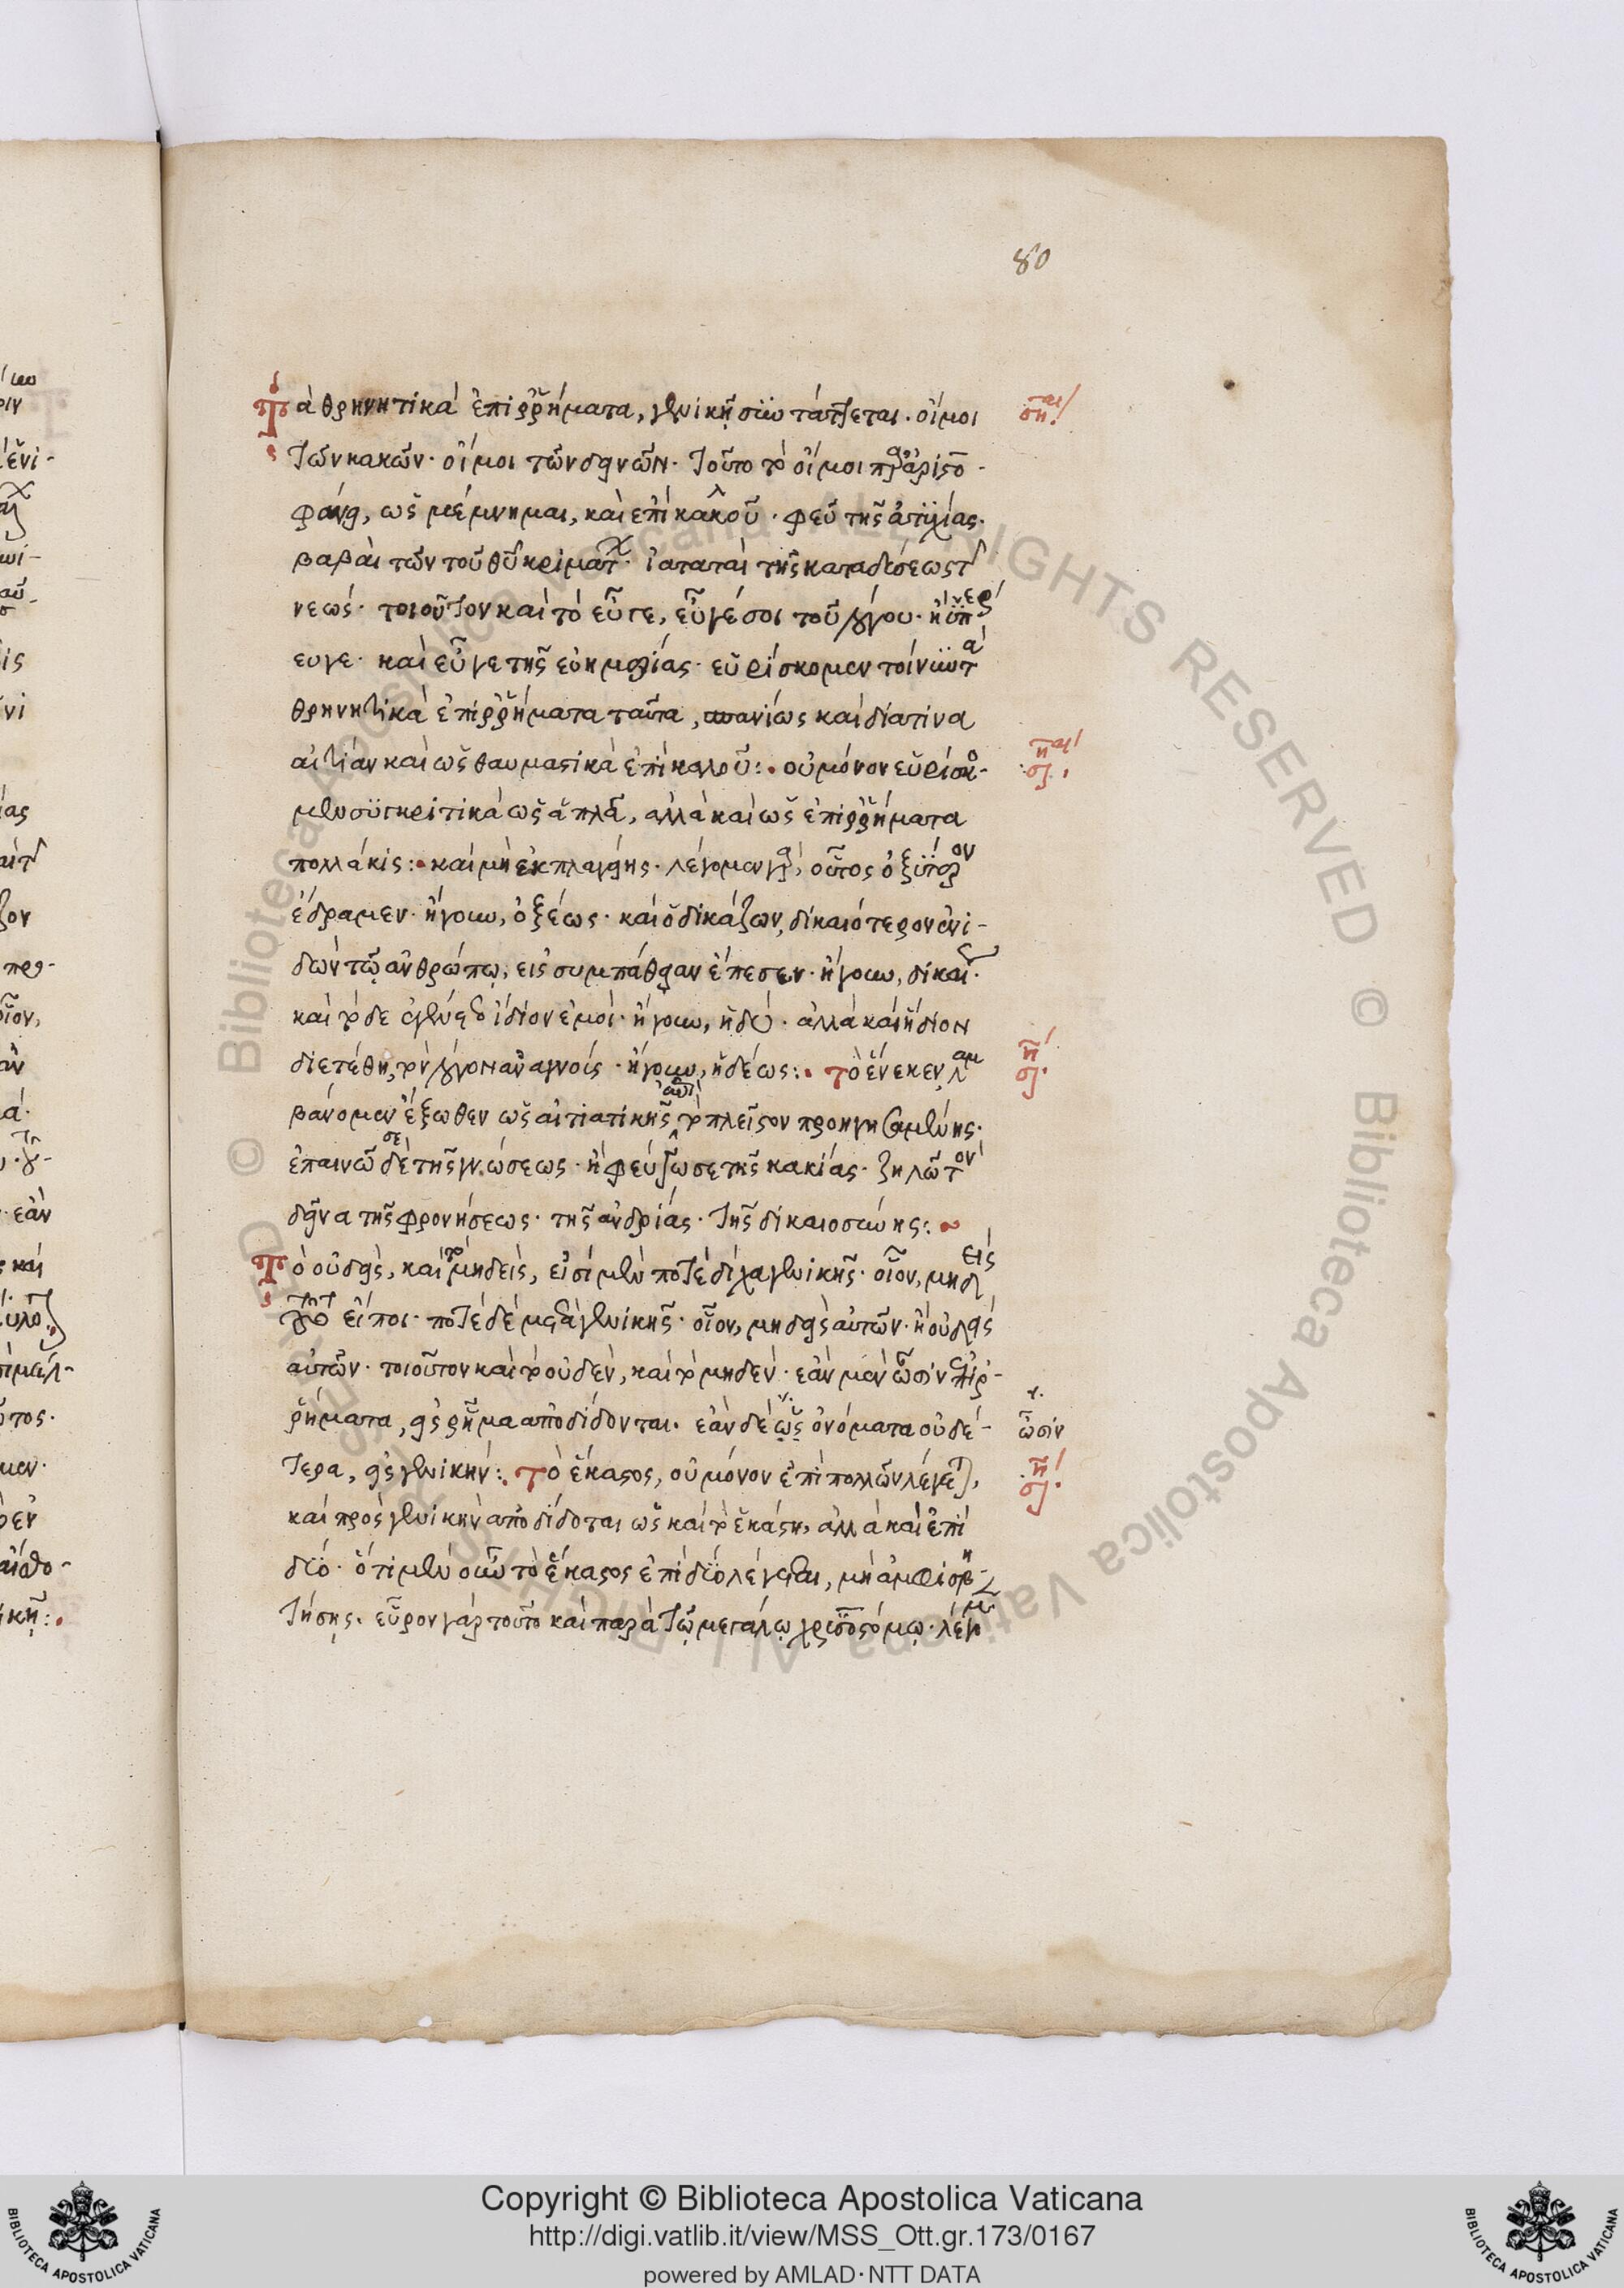 80
Τὰ θρηνητικὰ ἐπιρρήματα, γενικῇ συντάττεται. οἴμοι
τῶν κακῶν· οἴμοι τῶν δεινῶν. τοῦτο τὸ οἴμοι παρὰ ἀριστο-
φάνει, ὡς μέμνημαι, καὶ ἐπὶ καλοῦ. φεῦ τῆς ἀτυχίας.
βαβαὶ τῶν τοῦ θῦ κριμάτων. ἰαταταὶ τῆς καταδύσεως τῆς
νεώς. τοιοῦτον καὶ τὸ εὖγε, εὖγέ σοι τοῦ λόγου. ἢ ὑπὲρ
ευγε. καὶ εὖγε τῆς εὐημερίας. εὑρίσκομεν τοίνυν τὰ
θρηνητικὰ ἐπιρρήματα ταῦτα, σπανίως καὶ διά τινα
αἰτίαν καὶ ὡς θαυμαστικὰ ἐπὶ καλοῦ: οὐ μόνον εὑρίσκο-
μεν συγκριτικὰ ὡς ἁπλᾶ, ἀλλὰ καὶ ὡς ἐπιρρήματα
πολλάκις: καὶ μὴ ἐκπλαγῇς. λέγομεν γὰρ, οὗτος ὀξύτερον
ἔδραμεν. ἤγουν, ὀξέως. καὶ ὁ δικάζων, δικαιότερον ἐνι-
δὼν τῷ ἀνθρώπῳ, εἰς συμπάθειαν ἔπεσεν. ἤγουν, δικαίως.
καὶ τὸ δὲ ἐγένετο ἴδιον ἐμοί. ἤγουν, ἡδύ. ἀλλὰ καὶ ἥδιον
διετέθη, τὸν λόγον ἀναγνούς. ἤγουν, ἡδέως: τὸ ἕνεκεν, λαμ
βάνομεν ἔξωθεν ὡς αἰτιατικῆς τὸ πλεῖστον προηγησαμένης.
ἐπαινῶ σὲ δὲ τῆς γνώσεως. ἢ φεύξω σε τῆς κακίας. ζηλῶ τὸν
δεῖνα τῆς φρονήσεως. τῆς ἀνδρίας. τῆς δικαιοσύνης:
Τὸ οὐδεὶς, καὶ τὸ μηδεὶς, εἰσὶ μὲν ποτὲ δίχα γενικῆς. οἷον, μηδεὶς
τοῦτο εἴποι. ποτὲ δὲ μετὰ γενικῆς. οἷον, μηδεὶς αὐτῶν. ἢ οὐδεὶς
αὐτῶν. τοιοῦτον καὶ τὸ οὐδὲν, καὶ τὸ μηδέν. ἐὰν μὲν ὦσιν ἐπιρ-
ρήματα, εἰς ῥῆμα ἀποδίδονται. ἐὰν δὲ ὡς ὀνόματα οὐδέ- ὦσιν
τερα, εἰς γενικήν: τὸ ἕκαστος, οὐ μόνον ἐπὶ πολλῶν λέγεται,
καὶ πρὸς γενικὴν ἀποδίδοται ὡς καὶ τὸ ἑκάστη, ἀλλὰ καὶ ἐπὶ
δύο. ὅτι μὲν οὖν τὸ ἕκαστος ἐπὶ δύο λέγεται, μὴ ἀμφισβη-
τήσῃς. εὗρον γὰρ τοῦτο καὶ παρὰ τῷ μεγάλῳ χρυσοστόμῳ. λέγο
Copyright © Biblioteca Apostolica Vaticana
http://digi.vatlib.it/view/MSS_Ott.gr.173/0167
powered by AMLAD·NTT DATA